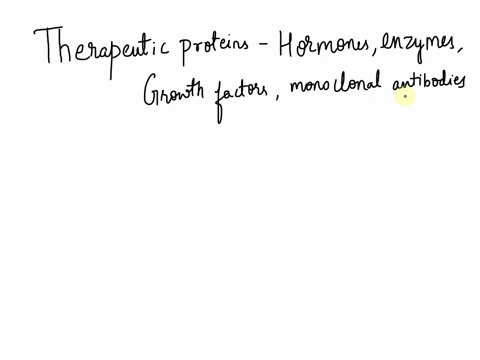 Therapeutic proteins - Hormones, enzymes,
Growth factors, monoclonal antibodies